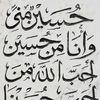 حُسَيْنٌ مِنِّي
وَأَنَا مِنْ حُسَيْنٍ
أَحَبَّ اللهُ مَنْ